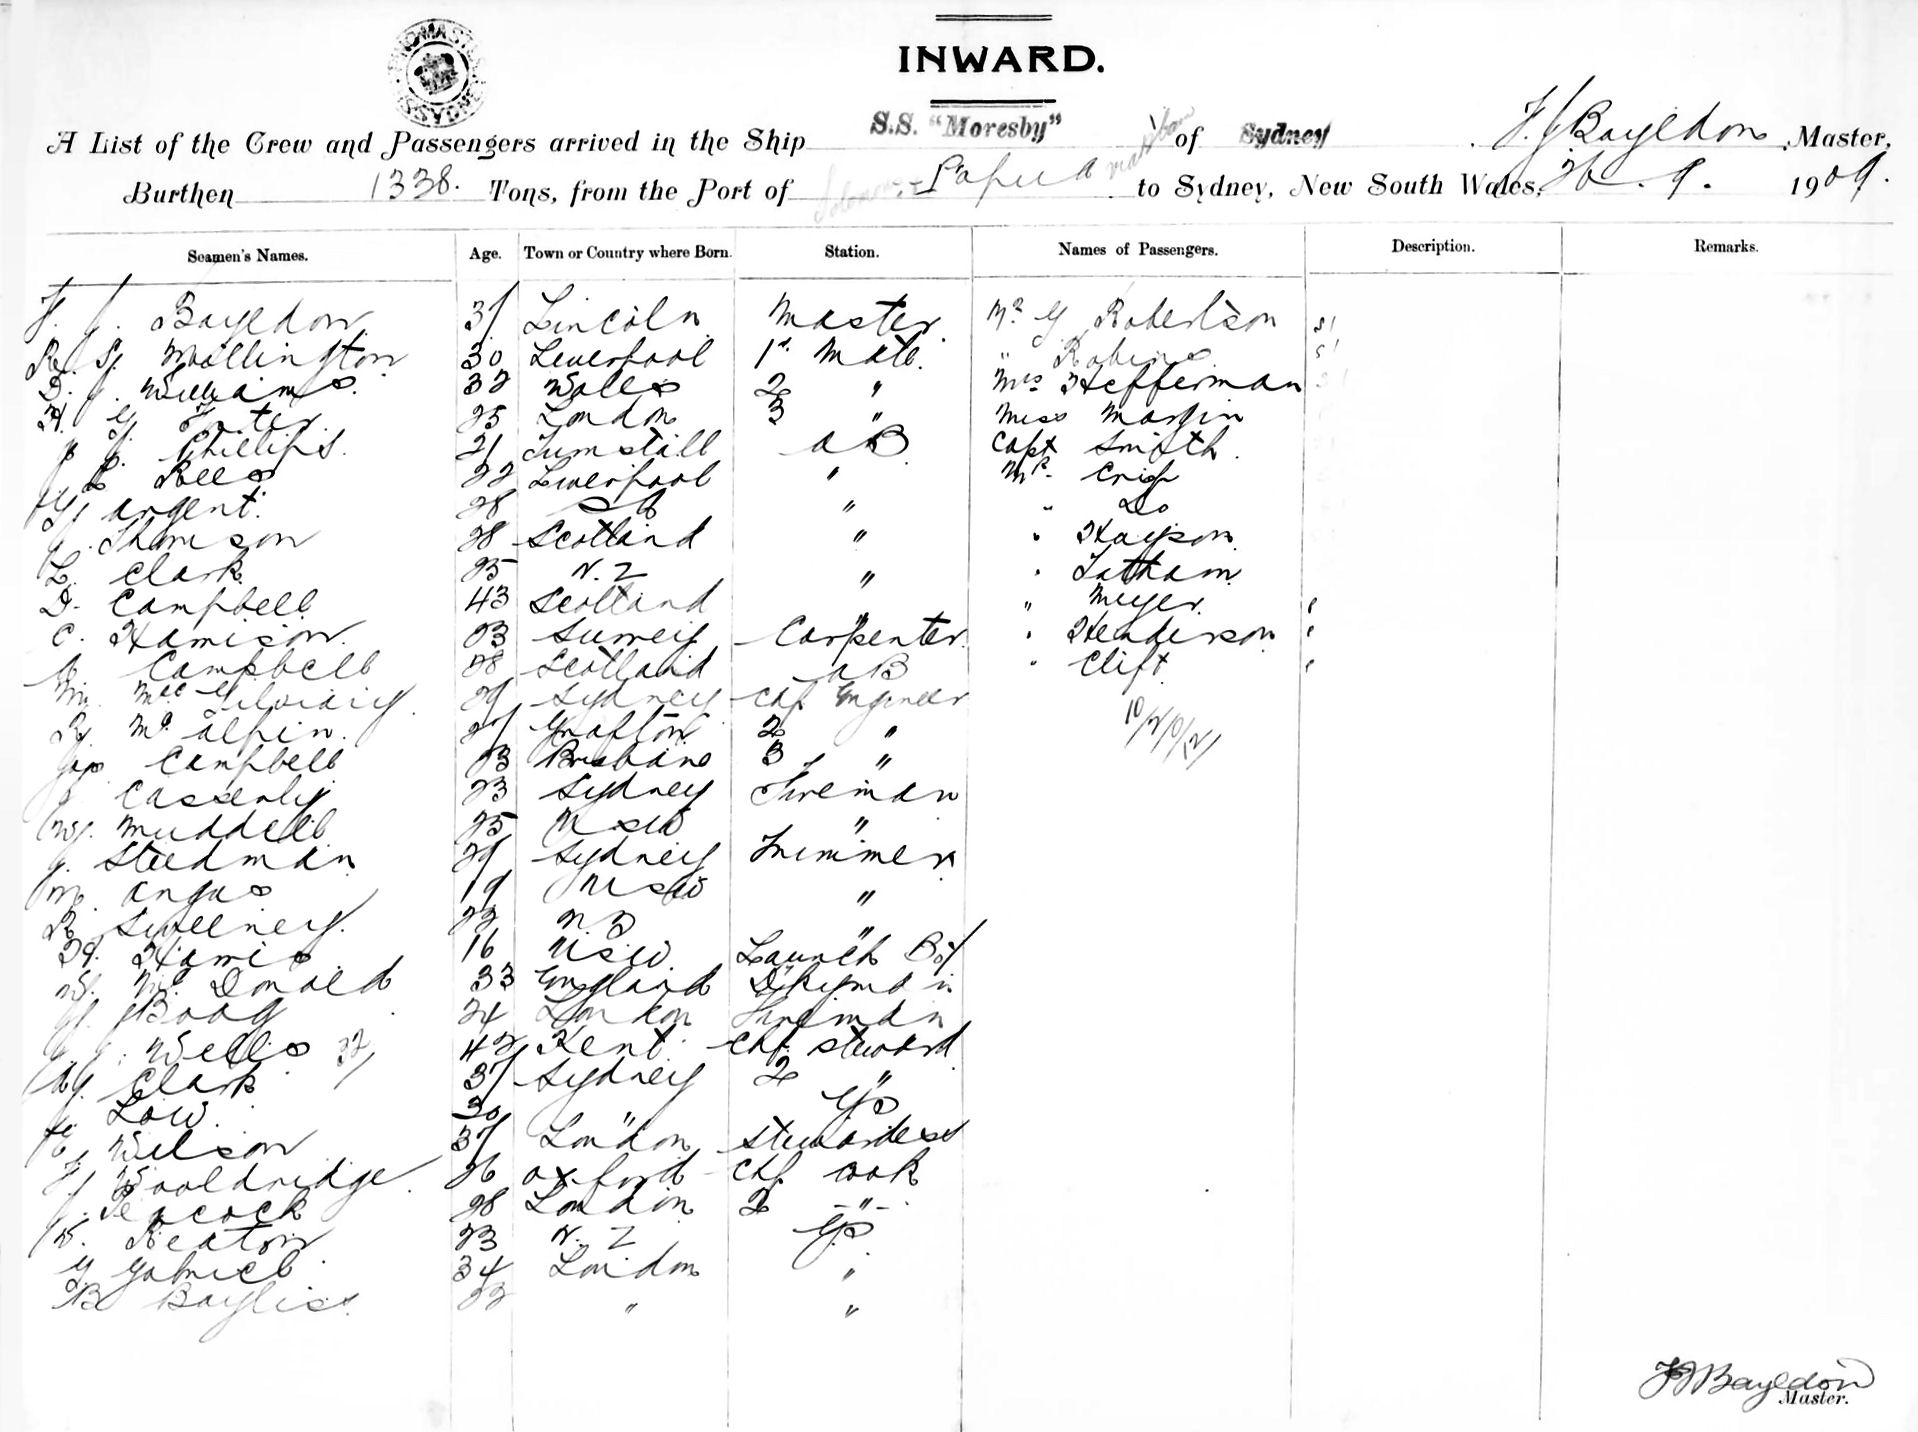 INWARD.
A List of the Crew and Passengers arrived in the Ship S.S. "Moresby" of Sydney F. J. Bayldon, Master,
Burthen 1338. Tons, from the Port of Papua to Sydney, New South Wales, 26. 9. 1909.
Seamen's Names. Age. Town or Country where Born. Station. Names of Passengers. Description. Remarks.
F. J. Bayldon 37 Lincoln Master Mr G Robertson
Wallington 30 Liverpool 1st Mate " Robins
D. J. Williams 32 Wales 2 " Mrs Hefferman
H. G. 25 London 3 " Miss Martin
Phillips 21 Tunstall AB Capt Smith
Rees 22 Liverpool " Mr Crisp
Argent 28 Do " " Do
Thomson 28 Scotland " " Hayson
L. Clark 25 N.Z " " Latham
D. Campbell 43 Scotland " " Meyer
C. Hamison 23 Surrey Carpenter " Henderson
Campbell 28 Scotland AB " Clift
29 Sydney Chf Engineer
R. McAlpin 27 Grafton 2 "
Jas Campbell 23 Brisbane 3 "
Casserly 23 Sydney Fireman
W. Muddell 25 NSW "
J. Steedman 29 Sydney Trimmer
M. Angus 19 NSW "
R. Sweeney 22 N.Z "
H. Harris 16 NSW Launch Boy
W. McDonald 33 England Dkyman
Boag 24 London Fireman
Wells 42 Kent Chf. Steward
W. Clark 37 Sydney 2 "
Low 30 " GS
E. Wilson 37 London Stewardess
F. Wooldridge 26 Oxford Chf. Cook
Peacock 28 London 2 - " -
W. Keaton 23 N.Z GS
G Gabriel 34 London "
B Bayliss 22 " "
FJBayldon
Master.